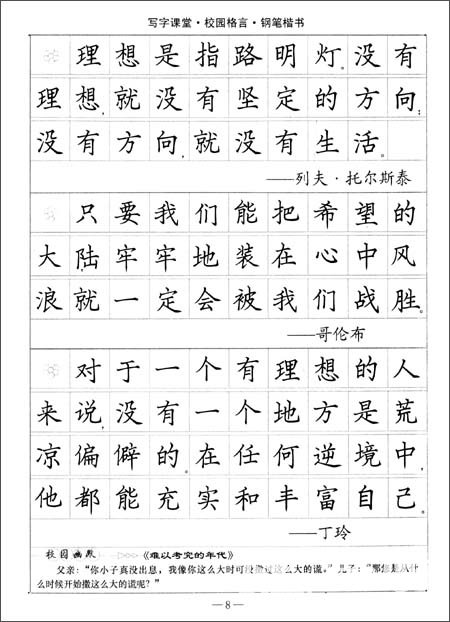 写字课堂·校园格言·钢笔楷书
理想是指路明灯。没有
理想,就没有坚定的方向;
没有方向,就没有生活。
——列夫·托尔斯泰
只要我们能把希望的
大陆牢牢地装在心中,风
浪就一定会被我们战胜。
——哥伦布
对于一个有理想的人
来说,没有一个地方是荒
凉偏僻的。在任何逆境中,
他都能充实和丰富自己。
——丁玲
校园幽默 《难以考究的年代》
父亲:“你小子真没出息,我像你这么大时可没撒过这么大的谎。”儿子:“那您是从什
么时候开始撒这么大的谎呢?”
—8—